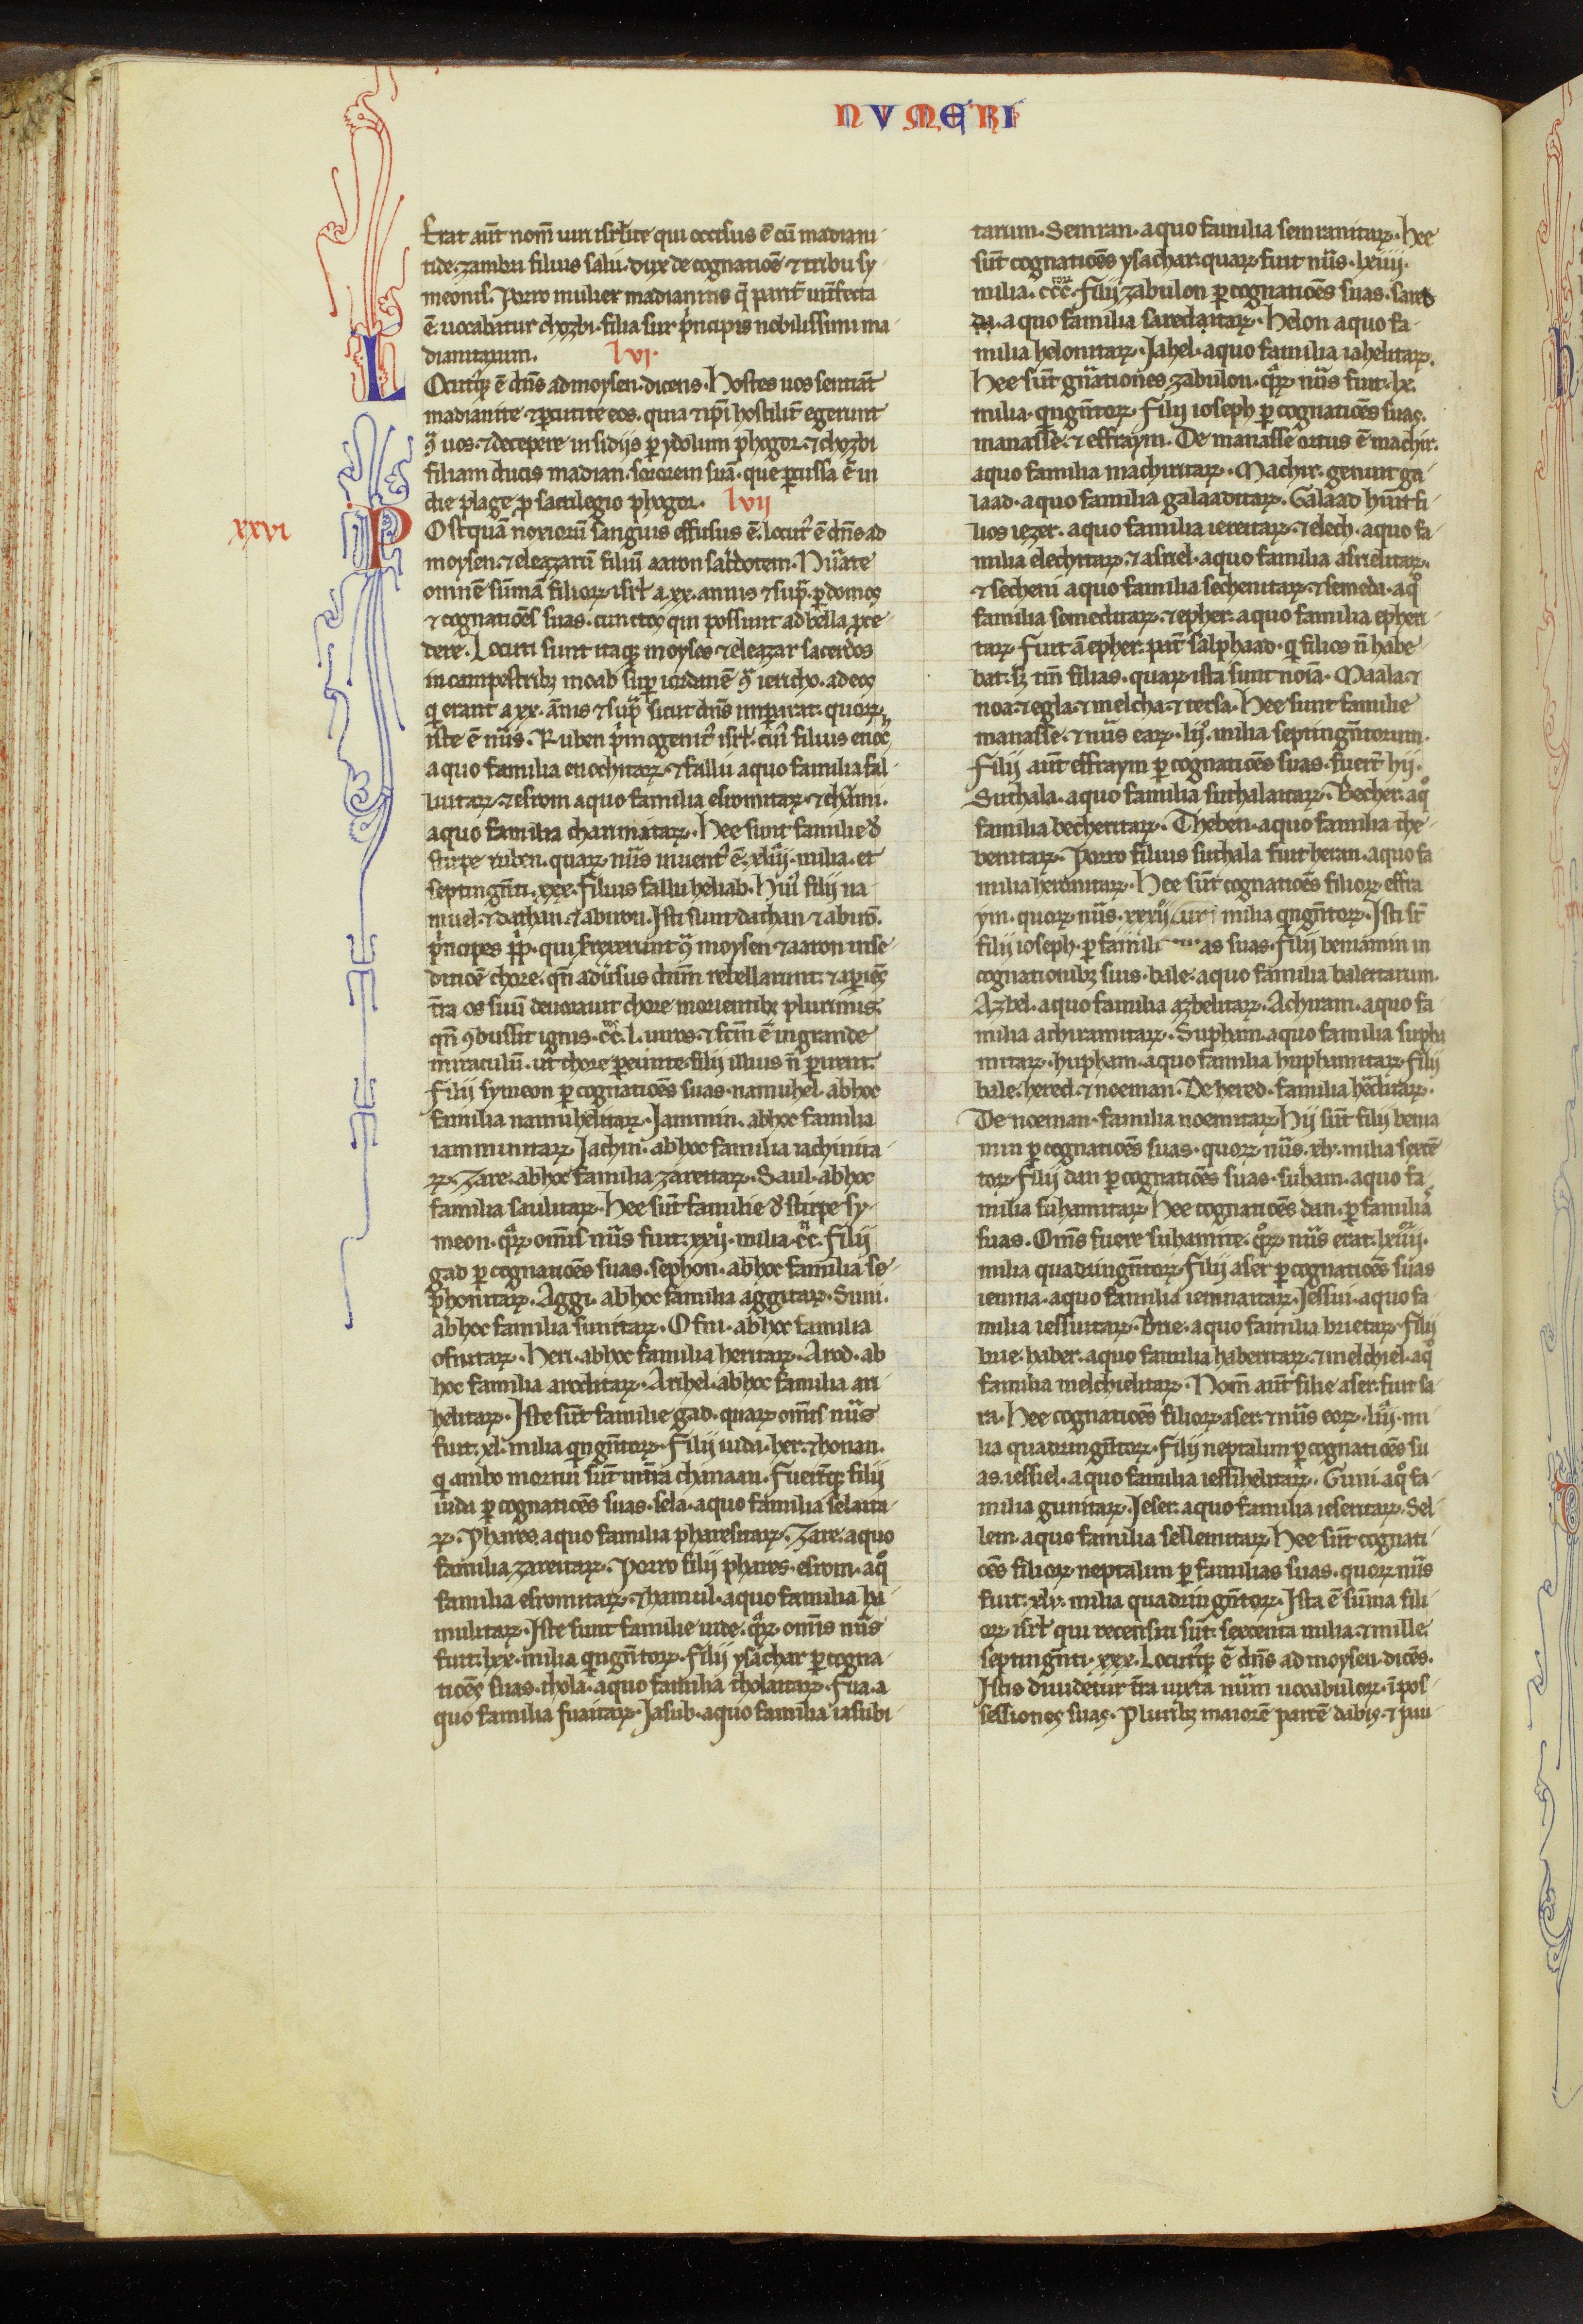 NVMERI
Erat aut̄ nom̄ uiri isrl̄ite qui occisus ē cū madiani
tide. zambri filius salu. dux de cognatiōe ⁊ tribu sy
meonis. Porro mulier madianitis q̄ parit̄ int̄fecta
ē. uocabatur chozbi. filia sur p̄ncipis nobilissimi ma
dianitarum. lvi.
LOcutusq; ē dn̄s ad moysen. dicens. Hostes uos sentiāt
madianite ⁊ ꝑcutite eos. quia ⁊ ip̄i hostilit̄ egerunt
ꝯ̄ uos. ⁊ decepere insidijs ꝑ ydolum phogor. ⁊ chozbi
filiam ducis madian. sororem suā. que ꝑcussa ē in
die plage ꝓ sacrilegio phogor. lvii
xxvi
POstquā noxiorū sanguis effusus ē. locut᷒ ē dn̄s ad
moysen. ⁊ eleazarū filiū aaron sac̄dotem. Nūate
omnē sūmā filioꝝ isrl̄ a .xx. annis ⁊ sup̄. ꝑ domos
⁊ cognatiōes suas. cunctos qui possunt ad bella ꝓce
dere. Locuti sunt itaq; moyses ⁊ eleazar sacerdos
in campestrib; moab suꝑ iordanē ꝯ̄ iericho. ad eos
q̄ erant a .xx. ānis ⁊ sup̄ sicut dn̄s imꝑarat. quoꝝ
iste ē nūs. Ruben p̄mogenit᷒ isrl̄. cui᷒ filius enoc
a quo familia enochitaꝝ. ⁊ fallu a quo familia fal
luitaꝝ. ⁊ esrom a quo familia esromitaꝝ. ⁊ charmi.
a quo familia charmitaꝝ. Hee sunt familie de
stirpe ruben. quaꝝ nūs inuent᷒ ē. xliij. milia. et
septingn̄ti .xxx. Filius fallu heliab. Hui᷒ filij na
muel. ⁊ dathan. ⁊ abiron. Isti sunt dathan ⁊ abirō.
p̄ncipes ppl̄i. qui surrexerunt ꝯ̄ moysen ⁊ aaron in se
ditiōe chore. qn̄ aduersus dn̄m rebellarunt. ⁊ aꝑiēs
t̄ra os suū deuorauit chore morientib; plurimis.
qn̄ ꝯbussit ignis. cc. l. uiros. ⁊ fcm̄ ē ingrande
miraculū. ut chore ꝑeunte filij illius n̄ ꝑirent.
Filij symeon ꝑ cognatiōes suas. namuhel. ab hoc
familia namuhelitaꝝ. Iammin. ab hoc familia
iamminitaꝝ. Iachin. ab hoc familia iachinita
ꝝ. Zare. ab hoc familia zareitaꝝ. Saul. ab hoc
familia saulitaꝝ. Hee sūt familie de stirpe sy
meon. quaꝝ om̄is nūs fuit. xxij. milia. cc. Filij
gad ꝑ cognatiōes suas. sephon. ab hoc familia se
phonitaꝝ. Aggi. ab hoc familia aggitaꝝ. Suni.
ab hoc familia sunitaꝝ. Ofni. ab hoc familia
ofnitaꝝ. Heri. ab hoc familia heritaꝝ. Arod. ab
hoc familia aroditaꝝ. Arihel. ab hoc familia ari
helitaꝝ. Iste sūt familie gad. quaꝝ om̄is nūs
fuit. xl. milia qngn̄toꝝ. Filij iuda. her. ⁊ honan.
q̄ ambo mortui sūt in t̄ra chanaan. Fuer̄tq; filij
iuda ꝑ cognatiōes suas. sela. a quo familia selaita
ꝝ. Phares. a quo familia pharesitaꝝ. Zare. a quo
familia zareitaꝝ. Porro filij phares. esrom. a quo
familia esromitaꝝ. ⁊ hamul. a quo familia ha
mulitaꝝ. Iste sunt familie iude. quaꝝ om̄is nūs
fuit. lxx. milia qngn̄toꝝ. Filij ysachar ꝑ cogna
tiōes suas. thola. a quo familia tholaitaꝝ. Fua. a
quo familia fuaitaꝝ. Iasub. a quo familia iasubi
tarum. Semran. a quo familia semranitaꝝ. Hee
sūt cognatiōes ysachar. quaꝝ fuit nūs. lxiiij.
milia. ccc. Filij zabulon ꝑ cognatiōes suas. sared
da. a quo familia saredaitaꝝ. Helon a quo fa
milia helonitaꝝ. Iahel. a quo familia iahelitaꝝ.
Hee sūt gn̄ationes zabulon. quaꝝ nūs fuit. lx.
milia. qngn̄toꝝ. Filij ioseph ꝑ cognatiōes suas.
manasse. ⁊ effraym. De manasse ortus ē machir.
a quo familia machiritaꝝ. Machir. genuit ga
laad. a quo familia galaaditaꝝ. Galaad hūit fi
lios iezer. a quo familia iezeritaꝝ. ⁊ elech. a quo fa
milia elechitaꝝ. ⁊ asriel. a quo familia asrielitaꝝ.
⁊ sechem a quo familia sechemitaꝝ. ⁊ semeda. a quo
familia semeditaꝝ. ⁊ epher. a quo familia epheri
taꝝ. Fuit ā epher. pat̄ salphaad. q̄ filios n̄ habe
bat. s; tm̄ filias. quaꝝ ista sunt noīa. Maala. ⁊
noa. ⁊ egla. ⁊ melcha. ⁊ tersa. Hee sunt familie
manasse. ⁊ nūs eaꝝ. lij. milia septingn̄torum.
Filij aut̄ effraym ꝑ cognatiōes suas. fuer̄t hij.
Suthala. a quo familia suthalaitaꝝ. Becher. a quo
familia becheritaꝝ. Thehen. a quo familia the
henitaꝝ. Porro filius suthala fuit heran. a quo fa
milia heranitaꝝ. Hee sūt cognatiōes filioꝝ effra
ym. quoꝝ nūs. xxxij milia qngn̄toꝝ. Isti st̄
filij ioseph. ꝑ famili as suas. Filij beniamin in
cognationib; suis. bale. a quo familia baleitarum.
Azbel. a quo familia azbelitaꝝ. Achiram. a quo fa
milia achiramitaꝝ. Supham. a quo familia supha
mitaꝝ. hupham. a quo familia huphamitaꝝ. Filij
bale. hered. ⁊ noeman. De hered. familia hereditaꝝ.
De noeman. familia noemitaꝝ. Hij sūt filij benia
min ꝑ cognatiōes suas. quoꝝ nūs. xlv. milia sexcē
toꝝ. Filij dan ꝑ cognatiōes suas. suham. a quo fa
milia suhamitaꝝ. Hee cognatiōes dan. ꝑ familias
suas. Om̄s fuere suhamite. quoꝝ nūs erat. lxiiij.
milia quadringn̄toꝝ. Filij aser ꝑ cognatiōes suas
iemna. a quo familia iemnaitaꝝ. Iessui. a quo fa
milia iessuitaꝝ. Brie. a quo familia brietaꝝ. Filij
brie. haber. a quo familia haberitaꝝ. ⁊ melchiel. a quo
familia melchielitaꝝ. Nom̄ aut̄ filie aser. fuit sa
ra. Hee cognatiōes filioꝝ aser. ⁊ nūs eoꝝ. liij. mi
lia quadringn̄toꝝ. Filij neptalim ꝑ cognatiōes su
as. iessiel. a quo familia iessihelitaꝝ. Guni. a quo fa
milia gunitaꝝ. Ieser. a quo familia ieseritaꝝ. Sel
lem. a quo familia sellemitaꝝ. Hee sūt cognati
ōes filioꝝ neptalim ꝑ familias suas. quoꝝ nūs
fuit. xlv. milia quadringn̄toꝝ. Ista ē sūma fili
oꝝ isrl̄ qui recensiti sūt. sexcenta milia. ⁊ mille
septingn̄ti. xxx. Locutusq; ē dn̄s ad moysen. dicēs.
Istis diuidetur t̄ra iuxta nūm uocabuloꝝ. ī pos
sessiones suas. Plurib; maiorē partē dabis. ⁊ pau